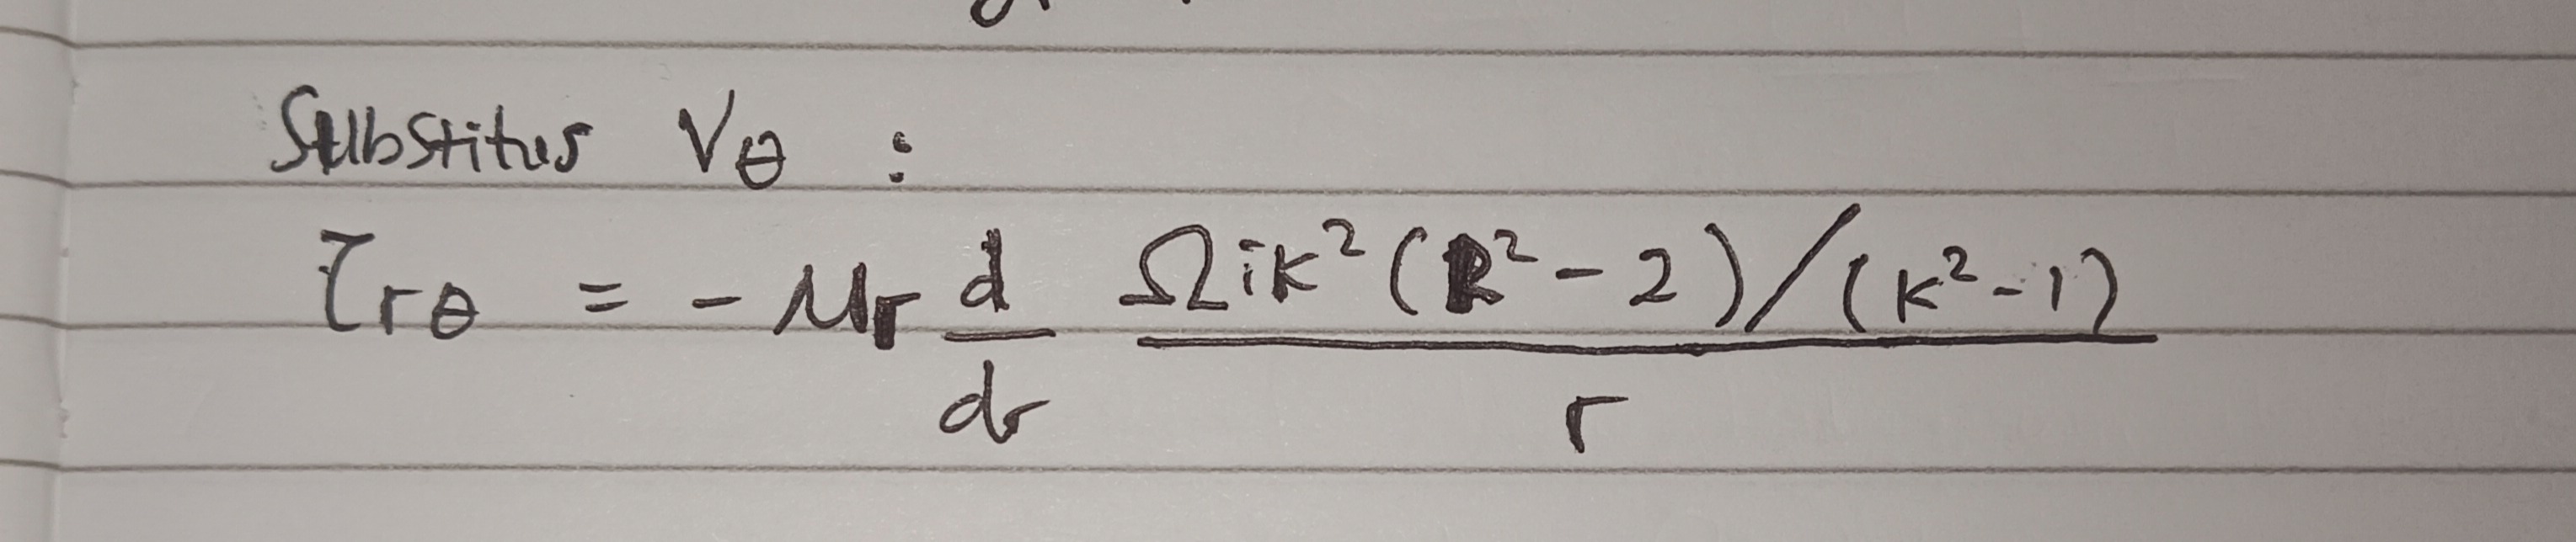 Substitus Vθ :
τrθ = - μr d/dr Ωik²(R²-2)/(k²-1) / r